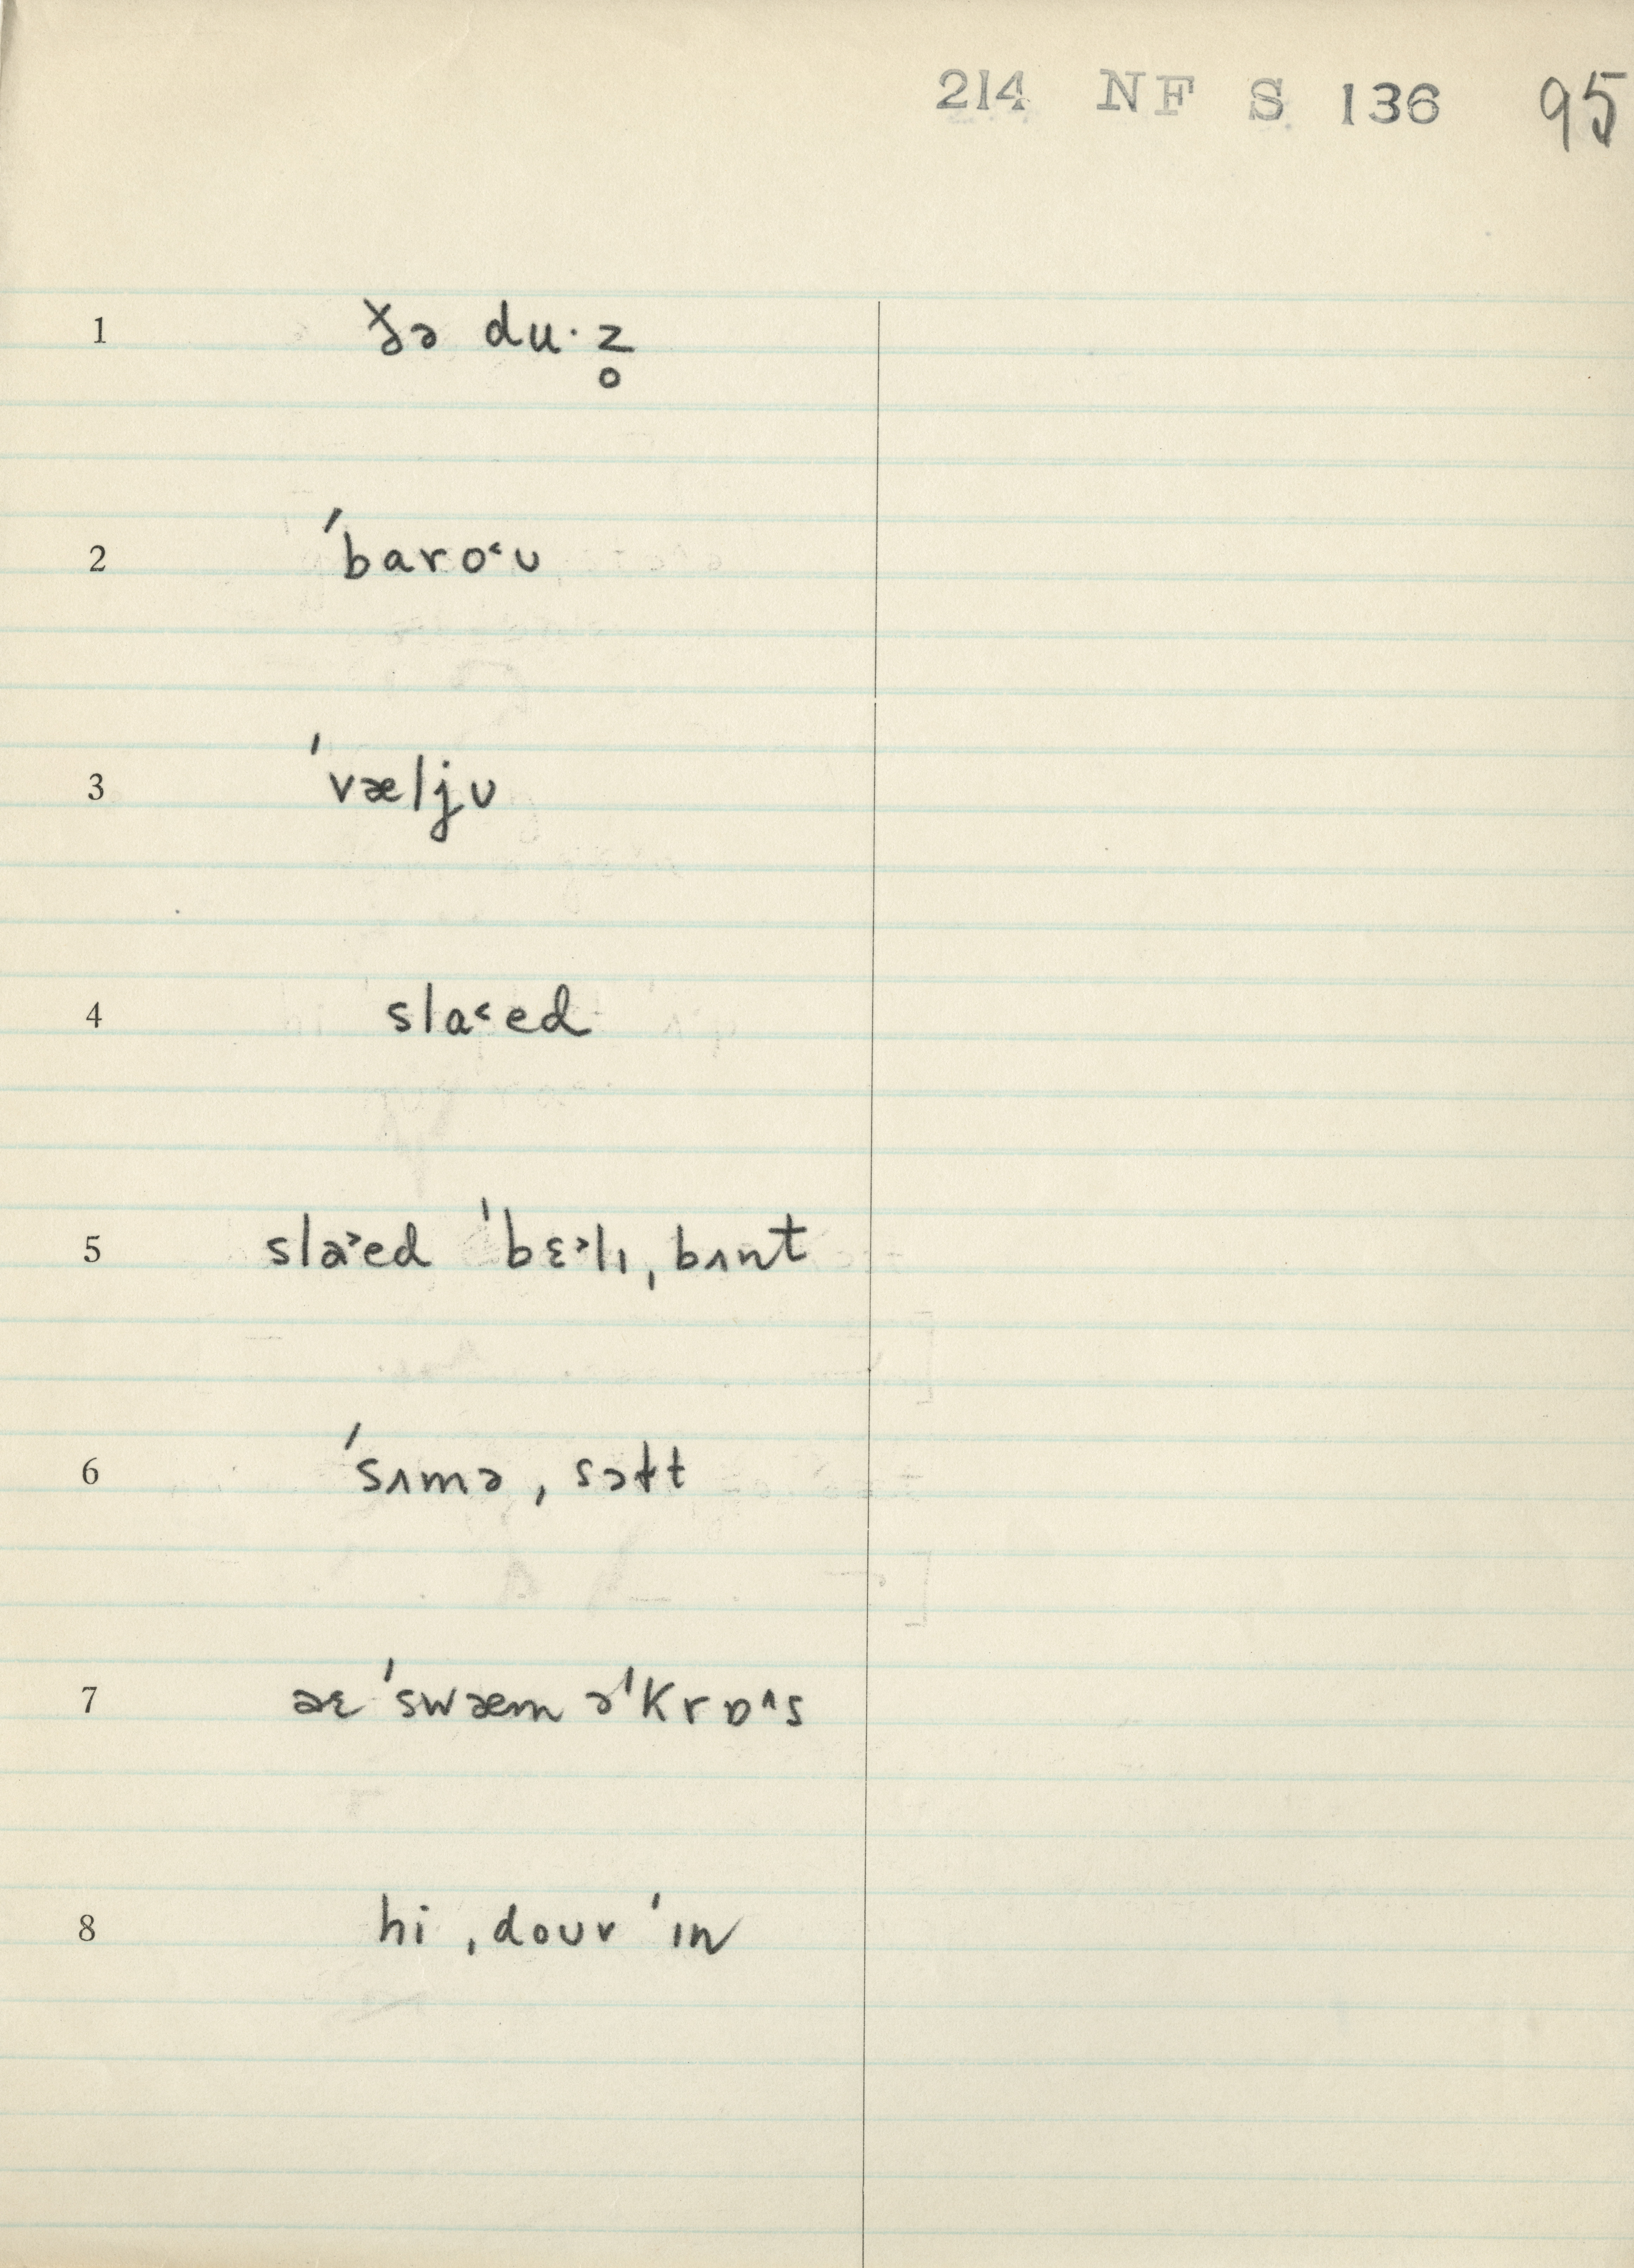 214 NF S 136 95
1 ðə du·z̥
2 ˈbaro˂ʊ
3 ˈvæljʊ
4 sla˂ed
5 slaə˃ed ˈbɛ˃lɪ ˌbʌnt
6 ˈsʌmə ˌsɔɫt
7 aɛ ˈswæm əˈkrɒ˄s
8 hi ˌdoʊv ˈɪn